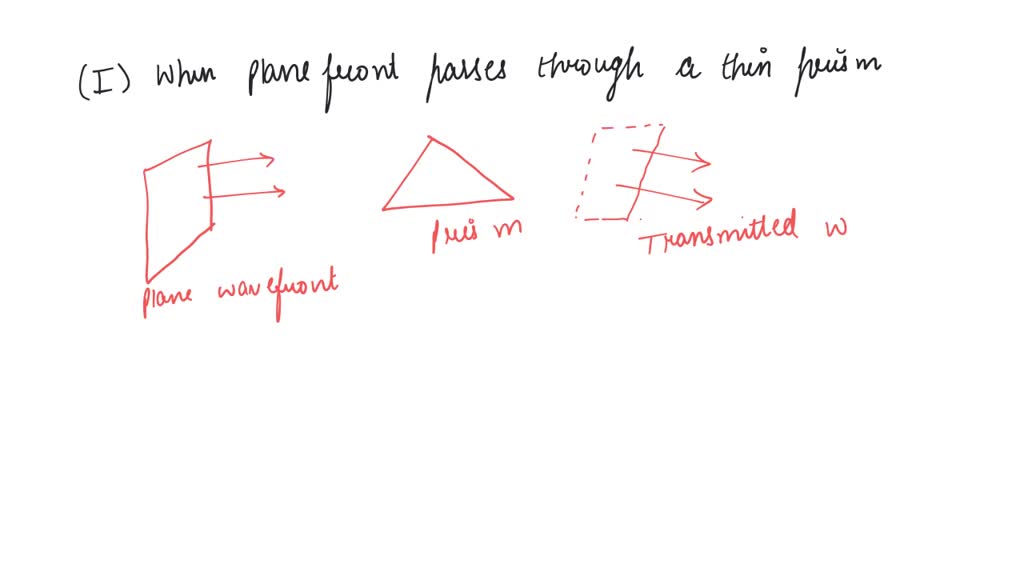 (I) When plane front passes through a thin prism
prism
Transmitted w
plane wavefront